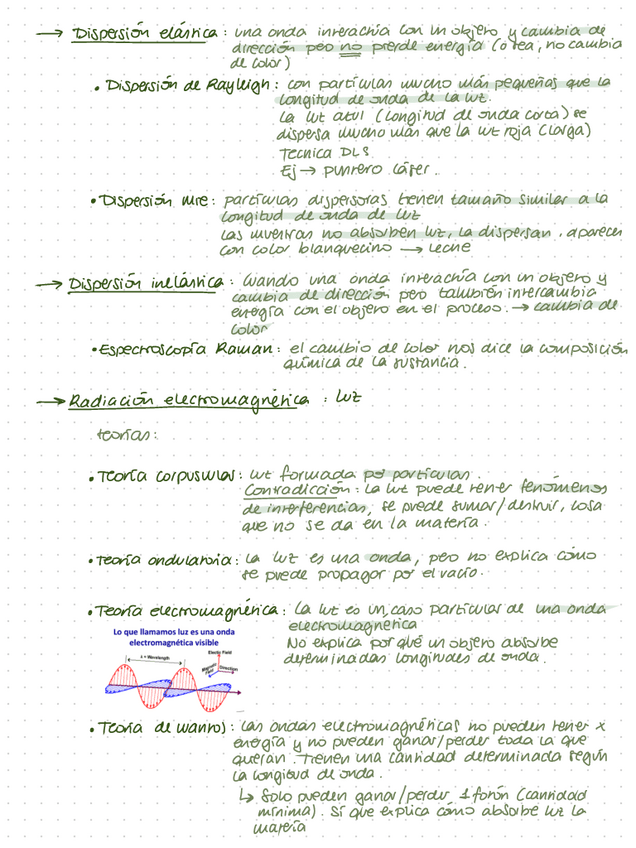 → Dispersión elástica : una onda interactúa con un objeto y cambia de
dirección pero no pierde energía (o sea, no cambia
de color)
• Dispersión de Rayleigh : con partículas mucho más pequeñas que la
longitud de onda de la luz.
La luz azul (longitud de onda corta) se
dispersa mucho más que la luz roja (larga)
Tecnica DLS
Ej → puntero láser.
• Dispersión Mie : partículas dispersoras tienen tamaño similar a la
longitud de onda de luz
Las muestras no absorben luz, la dispersan. aparecen
con color blanquecino → leche
→ Dispersión inelástica : Cuando una onda interactúa con un objeto y
cambia de dirección pero también intercambia
energía con el objeto en el proceso. → cambia de
color
• Espectroscopía Raman : el cambio de color nos dice la composición
química de la sustancia.
→ Radiación electromagnética : luz
teorías :
• Teoría corpuscular : luz formada por partículas.
Contradicción : la luz puede tener fenómenos
de interferencias, se puede sumar/destruir, cosa
que no se da en la materia.
• Teoría ondulatoria : La luz es una onda, pero no explica cómo
se puede propagar por el vacío.
• Teoría electromagnética : La luz es un caso particular de una onda
electromagnética
No explica por qué un objeto absorbe
determinadas longitudes de onda.
Lo que llamamos luz es una onda
electromagnética visible
λ = Wavelength
Electric Field
Magnetic Field
Direction
• Teoría de cuantos : Las ondas electromagnéticas no pueden tener x
energía y no pueden ganar/perder toda la que
quieran. Tienen una cantidad determinada según
la longitud de onda.
↳ Solo pueden ganar/perder 1 fotón (cantidad
mínima). Sí que explica cómo absorbe luz la
materia